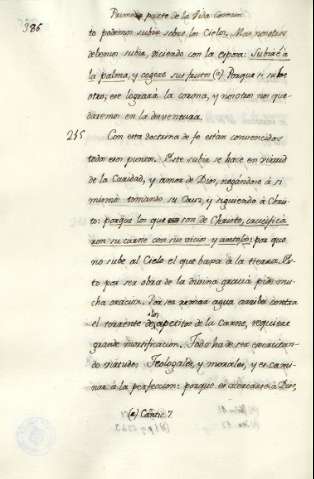 Primera parte de la Vida Comun
386
to podemos subir sobre los Cielos. Mas nosotros
debemos subir, diciendo con la esposa: Subiré á
la palma, y cogeré sus frutos (a) Porque si sube
otro, ese logrará la corona, y nosotros nos que
daremos en la desventura.
215 Con esta doctrina de fe están convencidos
todos esos puntos. Este subir se hace en virtud
de la Caridad, y amor de Dios, negandose á si
mismo tomando su Cruz, y siguiendo á Chris-
to: porque los que son de Christo, crucifica
ron su carne con sus vicios y apetitos: por que
no sube al Cielo el que busca de la tierra. Es-
to por ser obra de la divina gracia pide mu-
cha oracion. Por ser arrojar agua arriba contra
el torrente de los apetitos de la Carne, requiere
grande mortificacion. Todo ha de ser exercitan-
do virtudes Teologales, y morales, y es cami-
nar á la perfeccion: porque es acercarse á Dios,
(a) Cantic 7